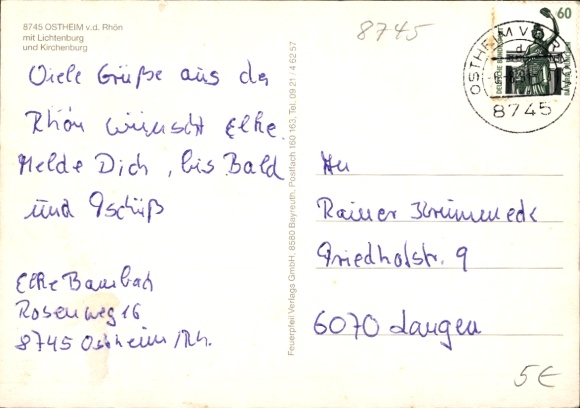 8745 OSTHEIM v.d. Rhön
mit Lichtenburg
und Kirchenburg
8745
60
OSTHEIM V. D.
8745
Viele Grüße aus der
Rhön wünscht Elke.
Melde Dich, bis Bald
und Tschüß
Elke Baumbach
Rosenweg 16
8745 Ostheim/Rh.
Feuerpfeil Verlags GmbH, 8580 Bayreuth, Postfach 160 163, Tel. 09 21 / 4 62 57
An
Rainer Krummeck
Friedhofstr. 9
6070 Langen
5€